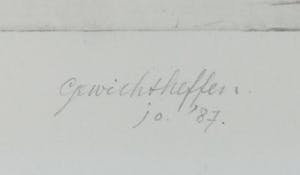 Gewichtheffen.
jo. '87.